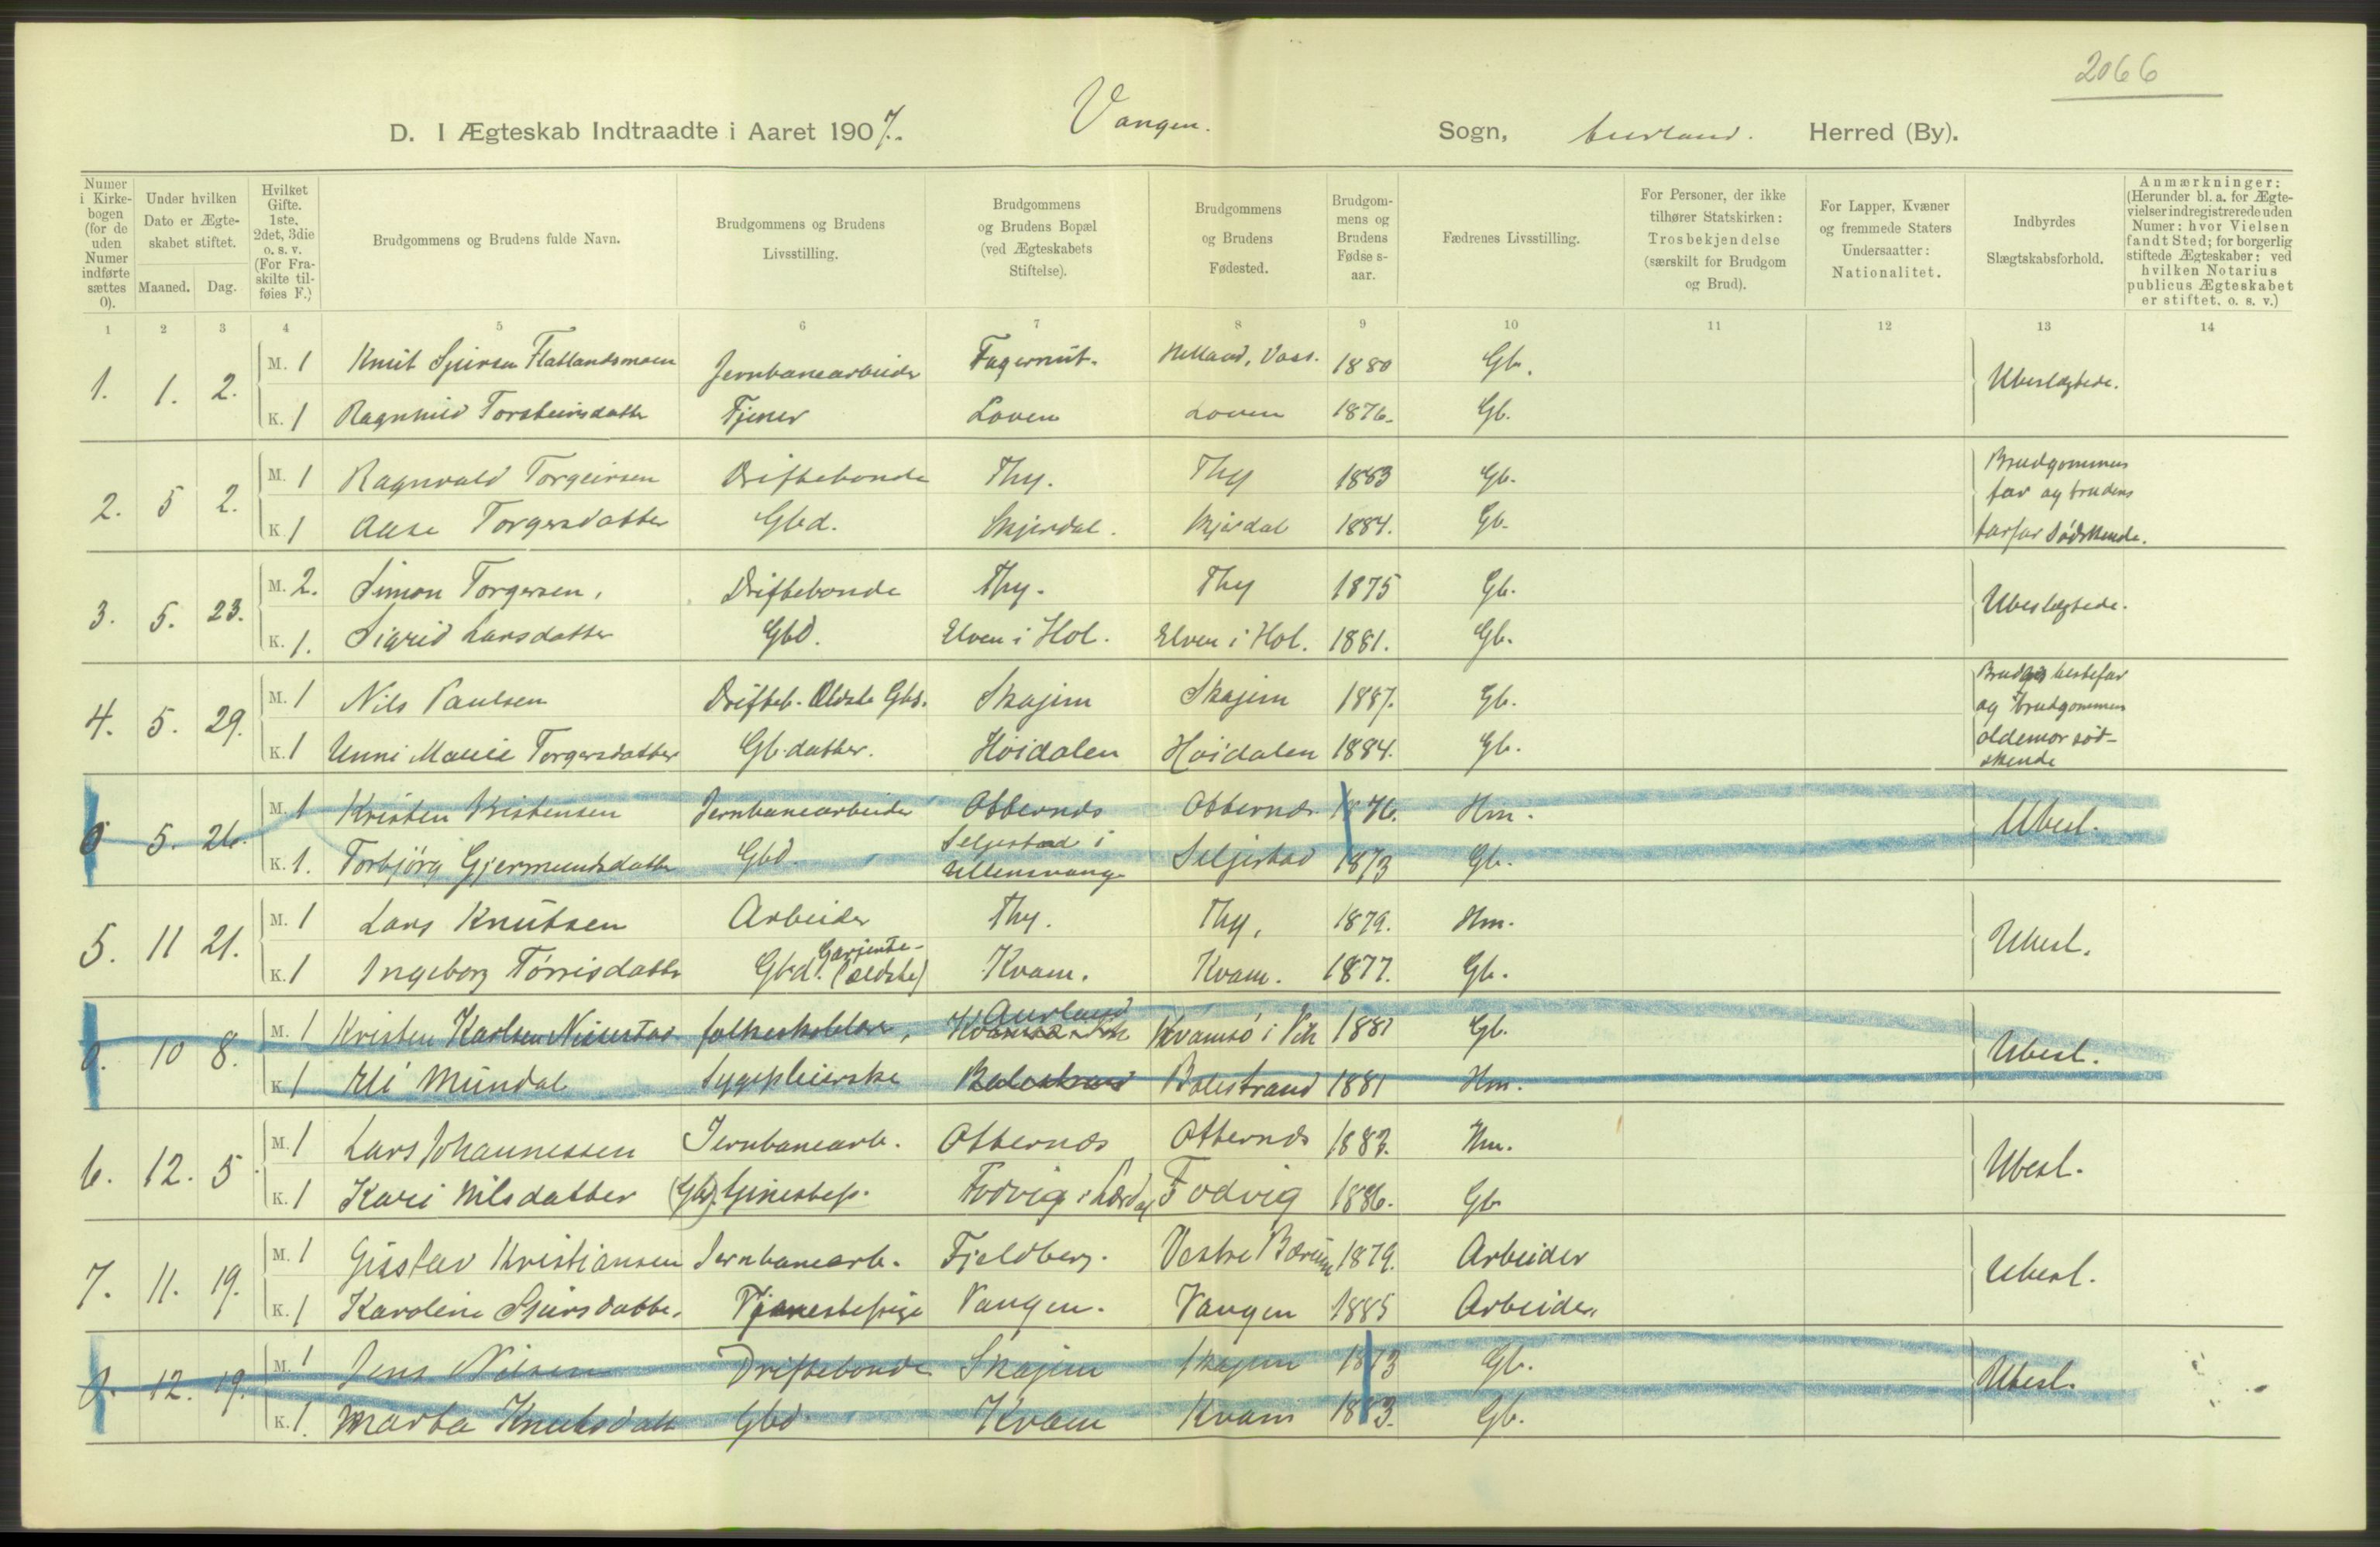 2066
D. I Ægteskab Indtraadte i Aaret 1907. Vangen. Sogn, Aurland. Herred (By).
Numer i Kirkebogen (for de uden Numer indførte sættes 0).
Under hvilken Dato er Ægteskabet stiftet.
Maaned. Dag.
Hvilket Gifte. 1ste, 2det, 3die o. s. v. (For Fraskilte tilføies F.)
Brudgommens og Brudens fulde Navn.
Brudgommens og Brudens Livsstilling.
Brudgommens og Brudens Bopæl (ved Ægteskabets Stiftelse).
Brudgommens og Brudens Fødested.
Brudgommens og Brudens Fødselsaar.
Fædrenes Livsstilling.
For Personer, der ikke tilhører Statskirken: Trosbekjendelse (særskilt for Brudgom og Brud).
For Lapper, Kvæner og fremmede Staters Undersaatter: Nationalitet.
Indbyrdes Slægtskabsforhold.
Anmærkninger: (Herunder bl. a. for Ægtevielser indregistrerede uden Numer: hvor Vielsen fandt Sted; for borgerlig stiftede Ægteskaber: ved hvilken Notarius publicus Ægteskabet er stiftet. o. s. v.)
1 2 3 4 5 6 7 8 9 10 11 12 13 14
1. 1. 2. M. 1 Knut Sjursen Flatlandsmoen Jernbanearbeider Fagernut. Helland, Voss. 1880 Gb. Ubeslægtede.
K. 1 Ragnhild Torsteinsdatter Tjener Loven Loven 1876. Gb.
2. 5 2. M. 1 Ragnvald Torgeirsen Driftebonde Thy. Thy 1883 Gb. Brudgommens far og brudens farfar Södskende.
K. 1 Aase Torgersdatter Gbd. Skjerdal. Skjerdal 1884. Gb.
3. 5. 23. M. 2. Simon Torgersen, Driftebonde Thy. Thy 1875 Gb. Ubeslægtede.
K. 1. Sigrid Larsdatter Gbd. Elven i Hol. Elven i Hol. 1881. Gb.
4. 5. 29. M. 1 Nils Paulsen Drifteb. Ældste Gbs. Skajem Skajem 1887. Gb. bestefar og brudgommens oldemor södskende
K. 1 Unni Marie Torgersdatter Gb.datter. Höidalen Höidalen 1884. Gb.
0 5. 26. M. 1 Kristen Kristensen Jernbanearbeider Otternes Otternes 1876. Hm. Ubesl.
K. 1. Torbjörg Gjermundsdatter Gbd. Seljestad i Ullensvang Seljestad 1873 Gb.
5. 11 21. M. 1 Lars Knutsen Arbeider Thy. Thy, 1879. Hm. Ubesl.
K. 1 Ingeborg Törrisdatter Gbd. Garjente- (ældste) Kvam. Kvam. 1877. Gb.
0. 10 8. M. 1 Kristen Karlsen folkeskolelærer, Aurland Kvamsö i Vik Kvamsö i Vik 1881 Gb. Ubesl.
K. 1 Eli Mundal Sygepleierske Balestrand Balestrand 1881 Hm.
6. 12. 5 M. 1 Lars Johannessen Jernbanearb. Otternes Otternes 1883. Hm. Ubesl.
K. 1 Kari Nilsdatter (Gbd) tjenestep. Fodvig i Lærdal Fodvig 1886. Gb
7. 11. 19. M. 1 Gustav Kristiansen Jernbanearb. Fjeldberg. Vestre Bærum 1879. Arbeider Ubesl.
K. 1 Karoline Sjursdatter. Tjenestepige Vangen. Vangen 1885 Arbeider.
0. 12. 19. M. 1 Jens Nilsen Driftebonde Skajem Skajem 1873 Gb. Ubesl.
K. 1. Marta Knutsdatt Gbd. Kvam Kvam 1883. Gb.